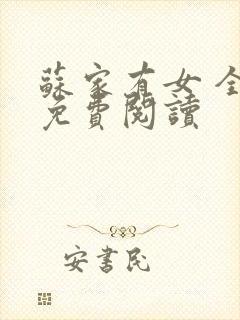 蘇家有女 全
免費閱讀
安書民